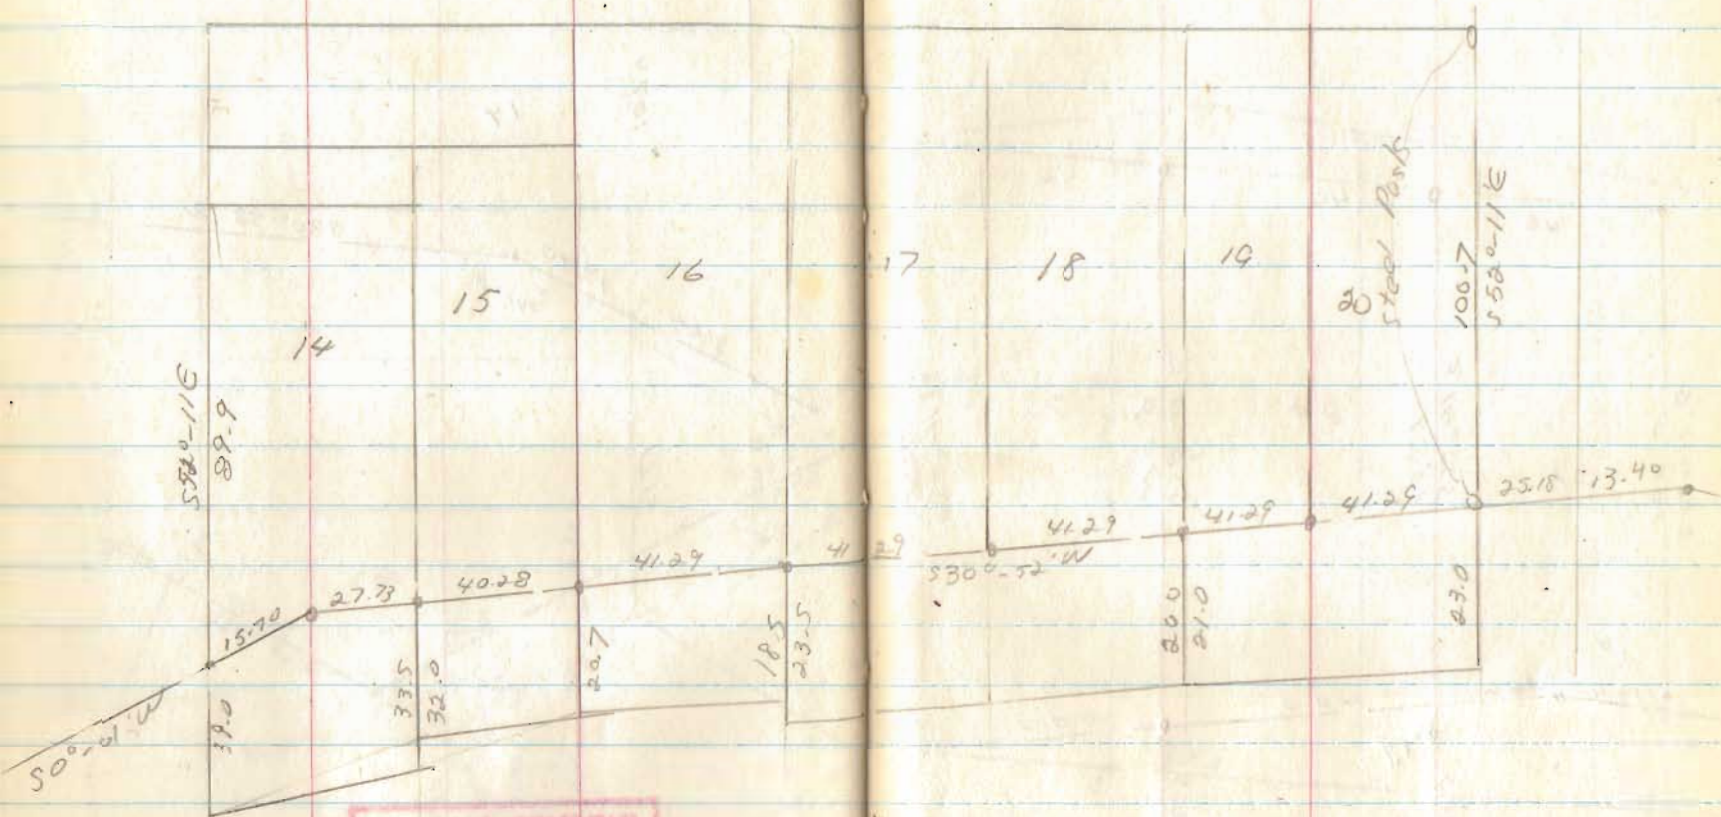 14
15
16
17
18
19
20
Steel Posts
100.7
S 52°-11'E
S52°-11'E
89.9
15.70
27.73
40.28
41.29
41.29
S30°-52'W
41.29
41.29
41.29
25.18
13.40
S0°-01'W
39.0
33.5
32.0
20.7
18.5
23.5
20.0
21.0
23.0